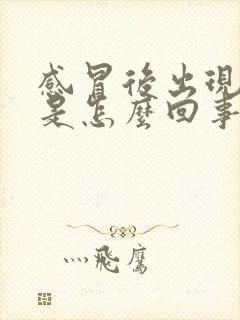 感冒後出現
是怎麼回事
灬飛鷹